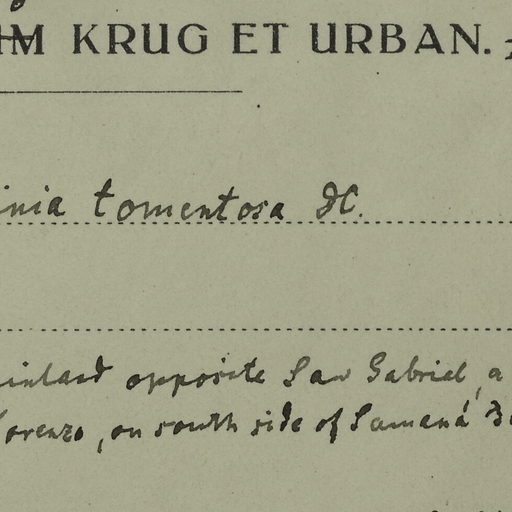 IM KRUG ET URBAN.
inia tomentosa DC.
ainland opposite San Gabriel, a
Lorenzo, on south side of Samaná Ba